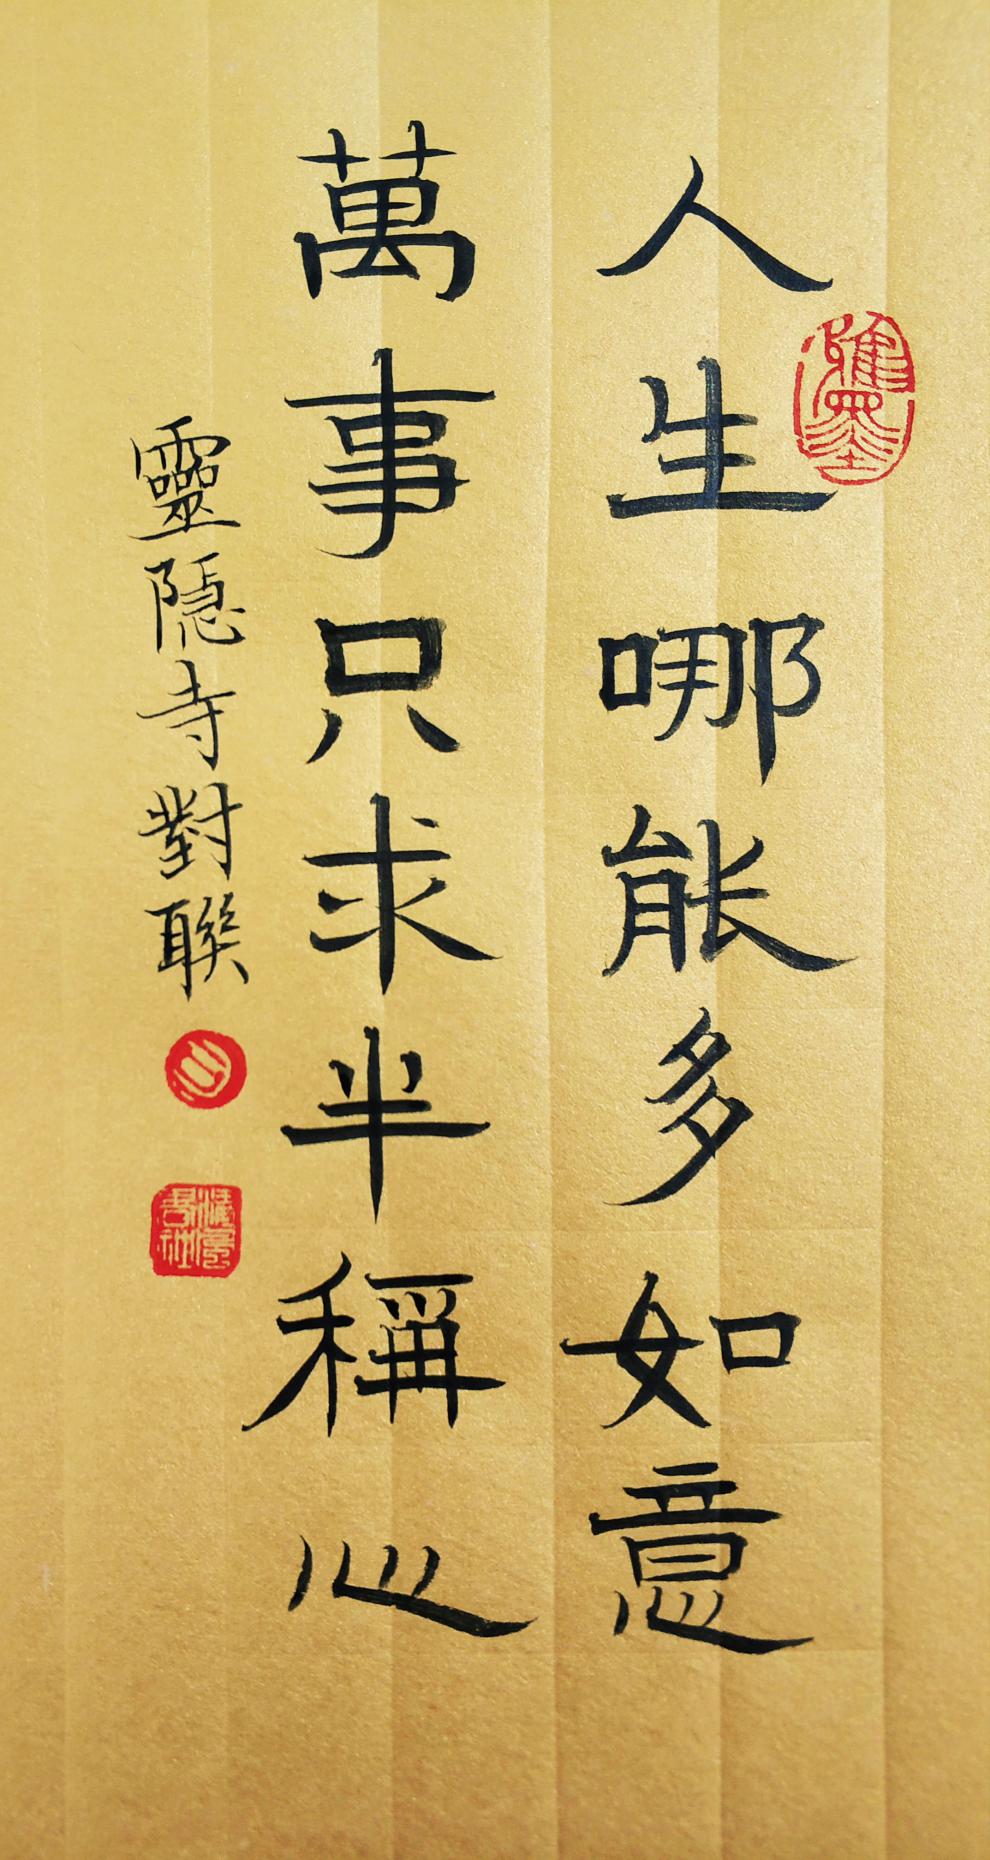 人生哪能多如意
萬事只求半稱心
靈隱寺對聯